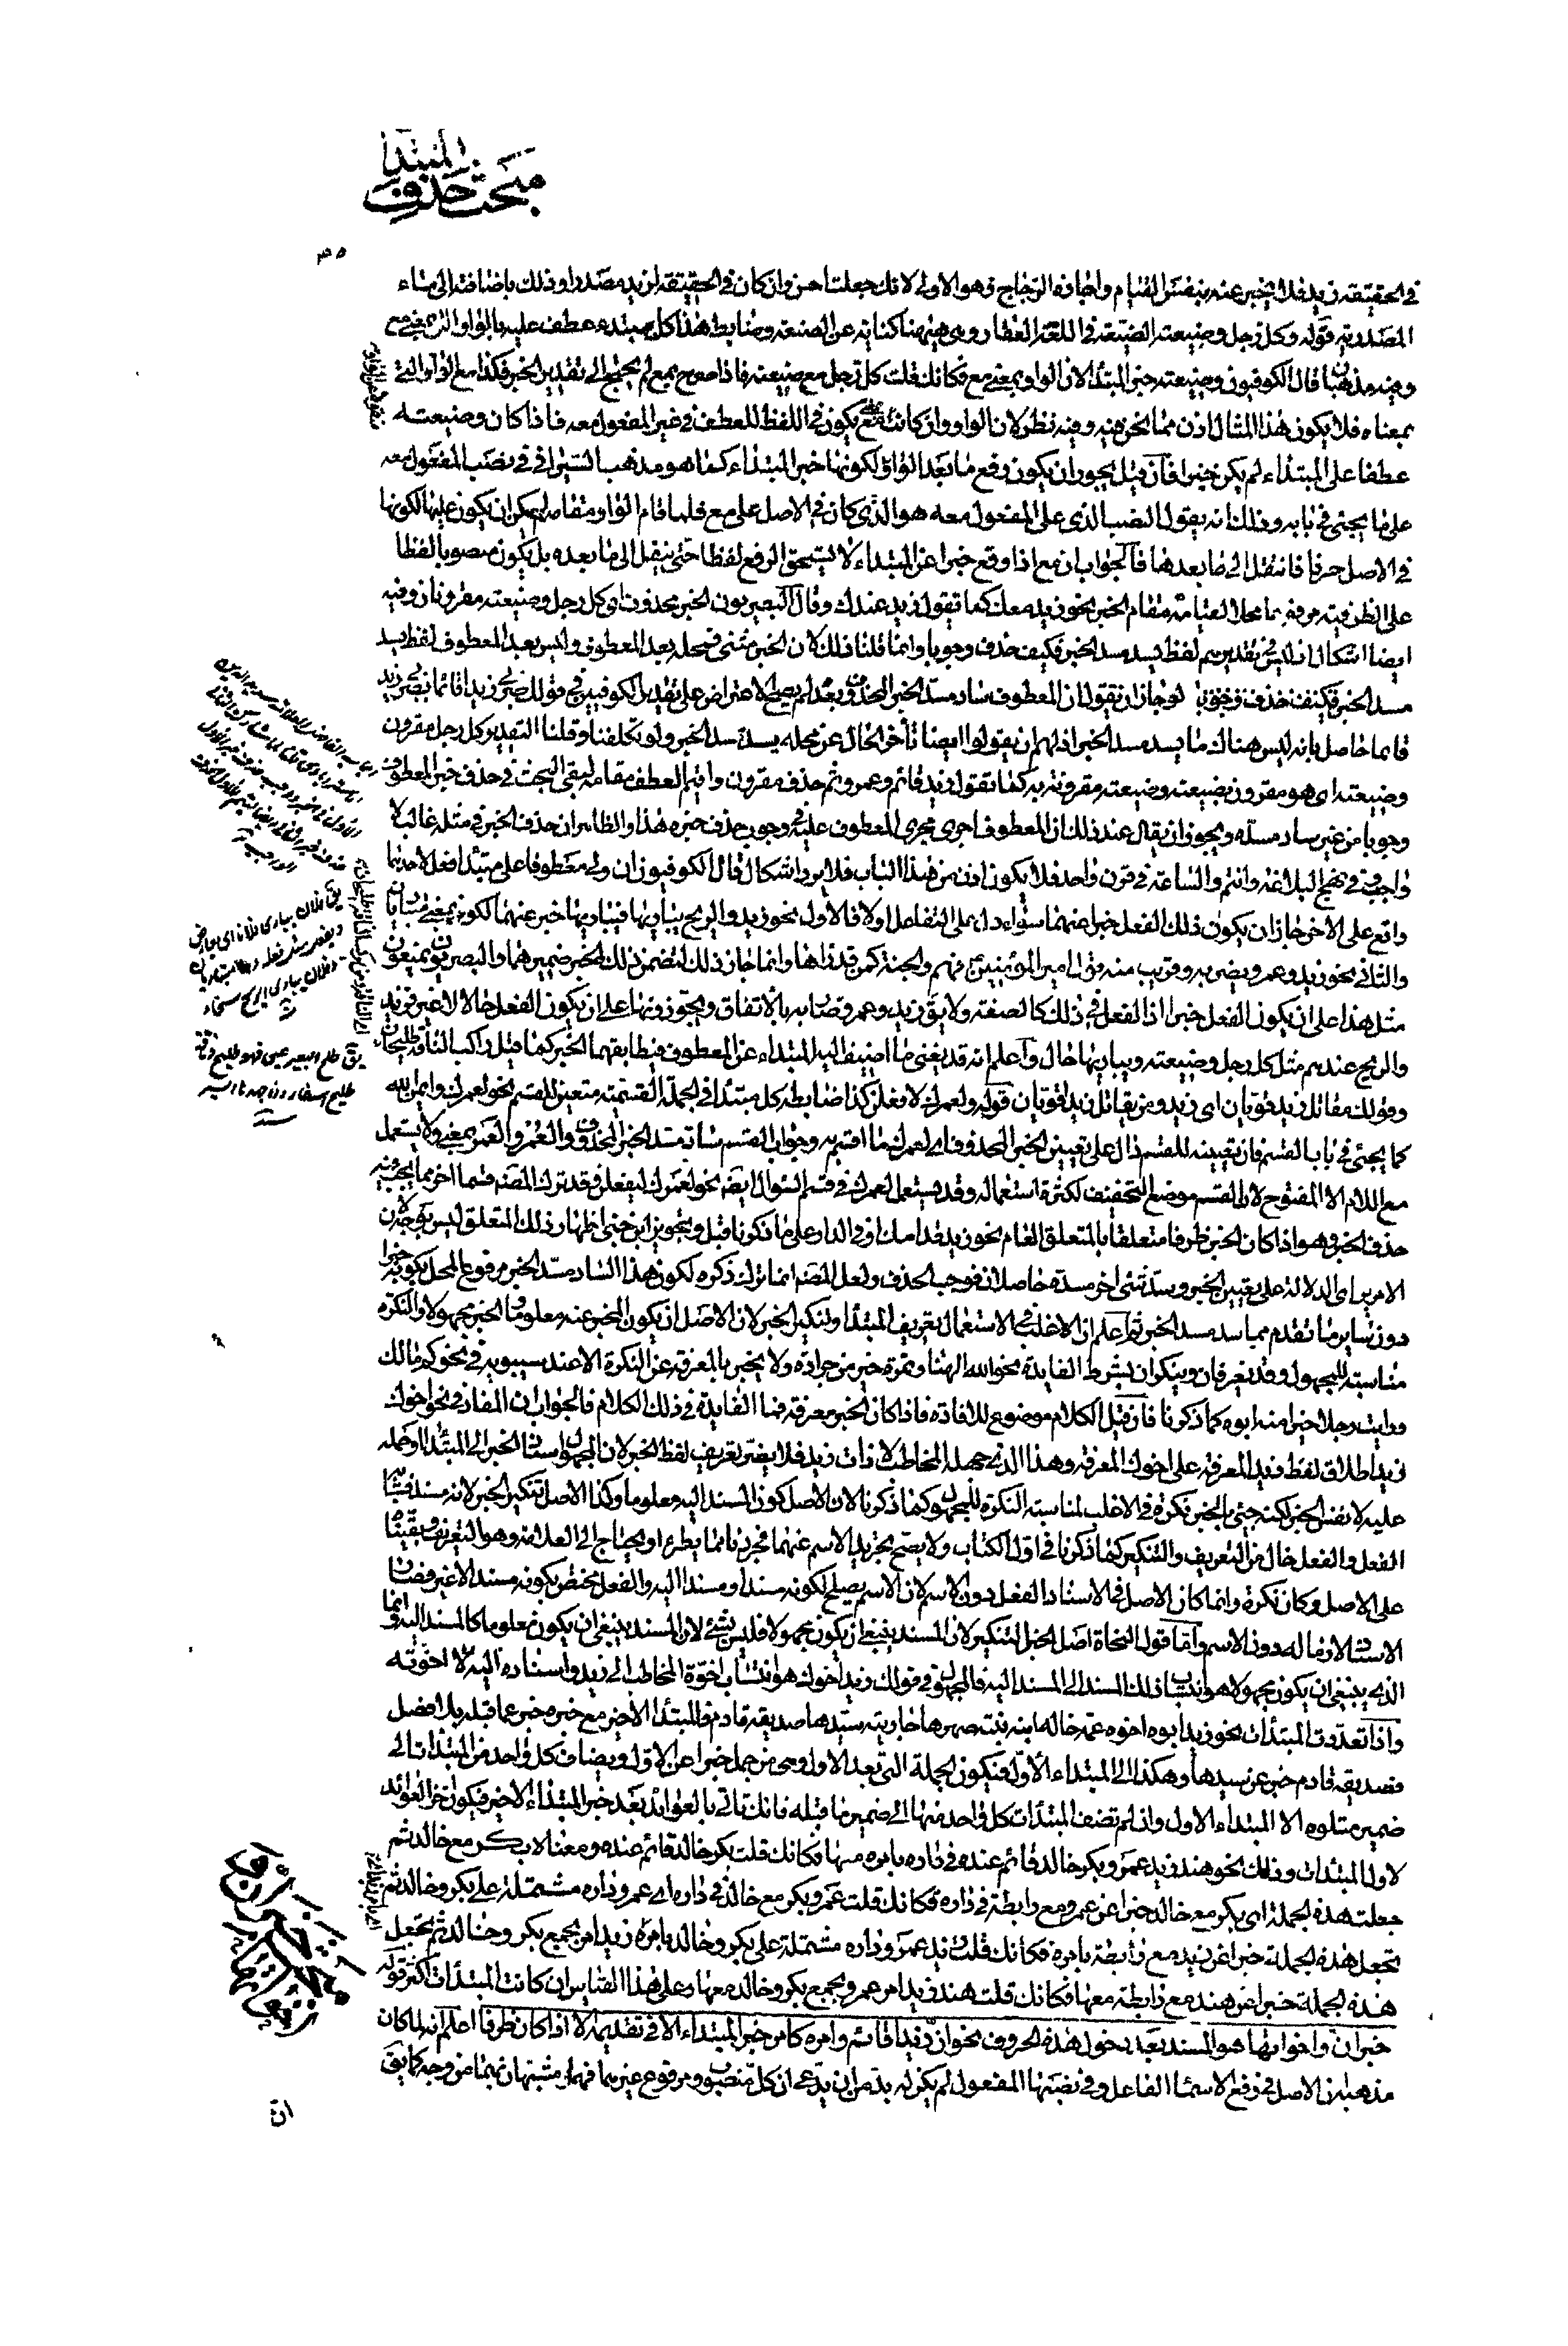 مبحث حذف المبتدا
٣٥
في الحقيقة زيد فلا يخبر عنه بنفس القيام واجازه الزجاج وهو الاولى لانك جعلت احسن وان كان في الحقيقة لزيد مصدرا وذلك باضافته الى ما
المصدرية قوله وكل رجل وضيعته الضيعة في اللغة العقار وهي ههنا كناية عن الصنعة وضابط هذا كل مبتدء عطف عليه بالواو التي بمعنى مع
وفيه مذهبان قال الكوفيون وضيعته خبر المبتدا لان الواو بمعنى مع فكانك قلت كل رجل مع ضيعته فاذا صرح بمع لم يحتج الى تقدير الخبر فكذا مع الواو التي
بمعناه فلا يكون هذا المثال اذن مما نحن فيه وفيه نظر لان الواو وان كانت بمعنى مع يكون في اللفظ للعطف في غير المفعول معه فاذا كان وضيعته
عطفا على المبتداء لم يكن خبرا فان قيل يجوز ان يكون رفع ما بعد الواو لكونها خبر المبتداء كما هو مذهب السيرافي في نصب المفعول معه
على ما يجئ في بابه وذلك انه يقول النصب الذي على المفعول معه هو الذي كان في الاصل على مع فلما قام الواو مقامه لم يمكن ان يكون عليها لكونها
في الاصل حرفا فانتقل الى ما بعدها فالجواب ان مع اذا وقع خبرا عن المبتداء لا يستحق الرفع لفظا حتى ينقل الى ما بعده بل يكون منصوبا لفظا
على الظرفية مرفوعا محلا لقيامه مقام الخبر نحو زيد معك كما تقول زيد عندك وقال البصريون الخبر محذوف اي كل رجل وضيعته مقرونان وفيه
ايضا اشكال اذ ليس في تقديرهم لفظ يسد مسد الخبر فكيف حذف وجوبا وانما قلنا ذلك لان الخبر مثنى فمحله بعد المعطوف وليس بعد المعطوف لفظ يسد
مسد الخبر فكيف حذف وجوبا لو جاز ان نقول ان المعطوف ساد مسد الخبر المحذوف بعده لم يصح الاعتراض على تقدير الكوفيين في قولك ضربي زيدا قائما
قائما حاصل بانه ليس هناك ما يسد مسد الخبر اذ لهم ان يقولوا ايضا تأخر الحال عن محله يسد مسد الخبر ولو تكلفنا وقلنا التقدير كل رجل مقرون
وضيعته اي هو مقرون بضيعته وضيعته مقرونة به كما تقول زيد قائم وعمرو ثم حذف مقرون واقيم العطف مقامه لبقي البحث في حذف خبر المعطوف
وجوبا من غير ساد مسده ويجوز ان يقال عند ذلك ان المعطوف اجري مجرى المعطوف عليه في وجوب حذف خبره هذا والظاهر ان حذف الخبر في مثله غالب لا
واجب وفي نهج البلاغة وانتم والساعة في قرن واحد فلا يكون اذن من هذا الباب فلا يرد اشكال قال الكوفيون ان ولي معطوفا على مبتدا فعل لاحدهما
واقع على الاخر جاز ان يكون ذلك الفعل خبرا عنهما سواء دل على التفاعل اولا فالاول نحو زيد والريح يباريها فيباريها خبر عنهما لكونه بمعنى متباريان
والثاني نحو زيد وعمرو يضربه وقريب منه قول امير المؤمنين فهم والجنة كمن قد راها وانما جاز ذلك لتضمن ذلك الخبر ضميرهما والبصريون يمنعون
مثل هذا على ان يكون الفعل خبرا اذ الفعل في ذلك كالصفة ولا يق زيد وعمرو ضاربه بالاتفاق ويجوزونها على ان يكون الفعل حالا لا غير فزيد
والريح عندهم مثل كل رجل وضيعته ويباريها حال واعلم انه قد يغني ما اضيف اليه المبتداء عن المعطوف فيطابقهما الخبر كما قيل راكب الناقة طليحان
وقولك مقاتل زيد قويان اي زيد ومن يقاتل زيد قويان قوله ولعمرك لافعلن كذا ضابطه كل مبتدا في الجملة القسمية متعين للقسم نحو لعمرك وايمن الله
كما يجئ في باب القسم فان تعيينه للقسم دال على تعيين الخبر المحذوف اي لعمرك ما اقسم به وجواب القسم ساد مسد الخبر المحذوف والعمر والعمر بمعنى ولا يستعمل
مع اللام الا المفتوح لان القسم موضع التخفيف لكثرة استعماله وقد يستعمل لعمرك في قسم السؤال ايضا نحو لعمرك لتفعلن وقد ترك المصنف قسما اخر مما يجب فيه
حذف الخبر وهو اذا كان الخبر ظرفا متعلقا بالمتعلق العام نحو زيد قدامك او في الدار على ما ذكرنا قبل وتجويز ابن جني اظهار ذلك المتعلق ليس بوجه لان
الامرين اي الدلالة على تعيين الخبر وسد شئ اخر مسده حاصلان فوجب الحذف ولعل المصنف انما ترك ذكره لكون هذا الساد مسد الخبر مرفوع المحل بكونه خبرا
دون ساير ما تقدم مما سد مسد الخبر ثم اعلم ان الاغلب في الاستعمال تعريف المبتدا وتنكير الخبر لان الاصل ان يكون المخبر عنه معلوما والخبر مجهولا والنكرة
مناسبة للمجهول وقد يعرفان وينكران بشرط الفايدة نحو الله الهنا وتمرة خير من جرادة ولا يخبر بالمعرفة عن النكرة الا عند سيبويه في نحو كم مالك
ورايت رجلا خيرا منه ابوه كما ذكرنا فان قيل الكلام موضوع للافادة فاذا كان الخبر معرفة فما الفايدة في ذلك الكلام فالجواب ان المفاد في نحو اخوك
زيد اطلاق لفظ زيد المعرفة على اخوك المعرفة وهذا الذي جهله المخاطب لا ذات زيد فلا يضر تعريف لفظ الخبر لان المجهول انتساب الخبر الى المبتدا وحمله
عليه لا نفس الخبر لكنه جئ بالخبر نكرة في الاغلب لمناسبة النكرة للمجهول وكما ذكرنا لان الاصل كون المسند اليه معلوما وكذا الاصل تنكير الخبر لانه مسند فشابه
الفعل والفعل خال من التعريف والتنكير كما ذكرنا في اول الكتاب ولا يصح تجريد الاسم عنهما فجردناه مما يطرء او يحتاج الى العلامة وهو التعريف وبقيناه
على الاصل وكان نكرة وانما كان الاصل في الاسناد الفعل دون الاسم لان الاسم يصلح لكونه مسندا ومسندا اليه والفعل مختص بكونه مسندا لا غير فصار
الاسناد لازما له دون الاسم واما قول النحاة اصل الخبر التنكير لان المسند ينبغي ان يكون مجهولا فليس بشئ لان المسند ينبغي ان يكون معلوما كالمسند اليه وانما
الذي ينبغي ان يكون مجهولا هو انتساب ذلك المسند الى المسند اليه فالمجهول في قولك زيد اخوك هو انتساب اخوة المخاطب الى زيد واسناده اليه لا اخوته
واذا تعددت المبتدأت نحو زيد ابوه اخوه عمه خاله ابنه بنته صهرها جاريته سيدها صديقه قادم فالمبتدأ الاخير مع خبره خبر عما قبله بلا فصل
فصديقه قادم خبر عن سيدها وهكذا الى المبتداء الأول فتكون الجملة التي بعد الاول وهي من جمل خبرا عن الاول ويضاف كل واحد من المبتدأت الى
ضمير متلوه الا المبتداء الاول وان لم تضف المبتدأت كل واحد منها الى ضمير ما قبله فانك تاتي بالعوائد بعد خبر المبتداء الاخير فيكون اخر العوائد
لاول المبتدأت وذلك نحو هند زيد عمرو بكر خالد قائم عنده في داره بامره معها فكانك قلت بكر خالد قائم عنده ومعناه بكر مع خالد ثم
جعلت هذه الجملة اي بكر مع خالد خبرا عن عمرو مع رابطة في داره فكانك قلت عمرو بكر مع خالد في داره اي عمرو داره مشتملة على بكر وخالد ثم
تجعل هذه الجملة خبرا عن زيد مع رابطة بامره فكانك قلت زيد عمرو داره مشتملة على بكر وخالد بامره زيد امر بجمع بكر وخالد ثم تجعل
هذه الجملة خبرا عن هند مع رابطة معها فكانك قلت هند زيد امر عمرو بجمع بكر وخالد معها وعلى هذا القياس ان كانت المبتدأت اكثر قوله
خبر ان واخواتها هو المسند بعد دخول هذه الحروف نحو ان زيدا قائم وامره كامر خبر المبتداء الا في تقديمه الا اذا كان ظرفا اعلم انه لما كان
مذهبه ان الاصل في رفع الاسماء الفاعل وفي نصبها المفعول لم يكن له بد من ان يدعى ان كل منصوب ومرفوع غيرهما فهما مشبهان بهما من وجه كما يق
ان